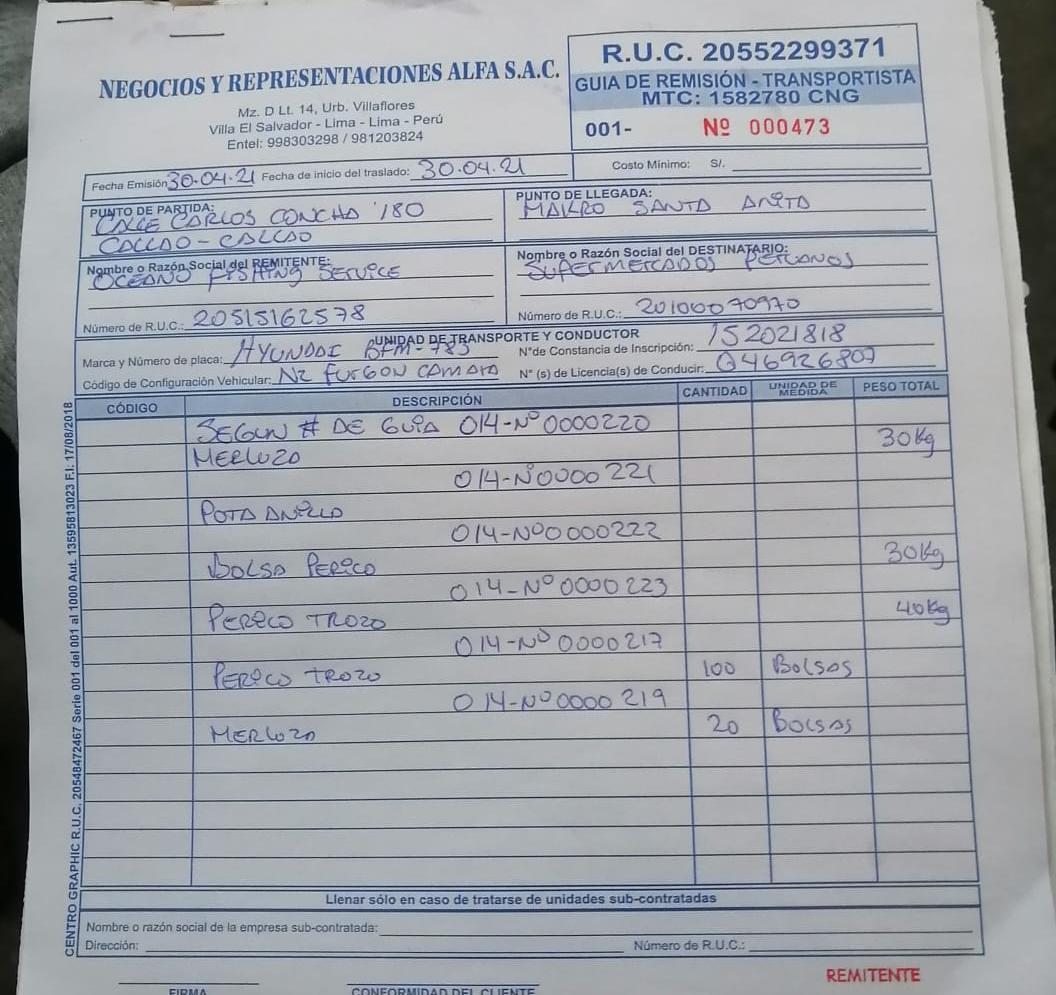 NEGOCIOS Y REPRESENTACIONES ALFA S.A.C.
Mz. D Lt. 14, Urb. Villaflores
Villa El Salvador - Lima - Lima - Perú
Entel: 998303298 / 981203824
R.U.C. 20552299371
GUIA DE REMISIÓN - TRANSPORTISTA
MTC: 1582780 CNG
001- Nº 000473
Fecha Emisión 30.04.21 Fecha de inicio del traslado: 30.04.21
Costo Mínimo: S/.
PUNTO DE PARTIDA:
CALLE CARLOS CONCHA 180
CALLAO - CALLAO
PUNTO DE LLEGADA:
MAKRO SANTA ANITA
Nombre o Razón Social del REMITENTE:
OCEANO FISHING SERVICE
Número de R.U.C.: 20515162578
Nombre o Razón Social del DESTINATARIO:
SUPERMERCADOS PERUANOS
Número de R.U.C.: 20100070970
UNIDAD DE TRANSPORTE Y CONDUCTOR
Marca y Número de placa: HYUNDAI -783
N°de Constancia de Inscripción: 152021818
Código de Configuración Vehicular: N2 FURGON CAMARA
N° (s) de Licencia(s) de Conducir: Q46926807
CÓDIGO DESCRIPCIÓN CANTIDAD UNIDAD DE MEDIDA PESO TOTAL
SEGUN # DE GUIA 014-Nº0000220
MERLUZA 30Kg
014-Nº0000221
POTA ANILLO
014-Nº0000222
BOLSA PERICO 30Kg
014-Nº0000223
PERICO TROZO 40Kg
014-Nº0000217
PERICO TROZO 100 BOLSAS
014-Nº0000219
MERLUZA 20 BOLSAS
Llenar sólo en caso de tratarse de unidades sub-contratadas
Nombre o razón social de la empresa sub-contratada:
Dirección: Número de R.U.C.:
REMITENTE
FIRMA
CONFORMIDAD DEL CLIENTE
CENTRO GRAPHIC R.U.C. 20548472467 Serie 001 del 001 al 1000 Aut. 13595813023 F.I: 17/08/2018